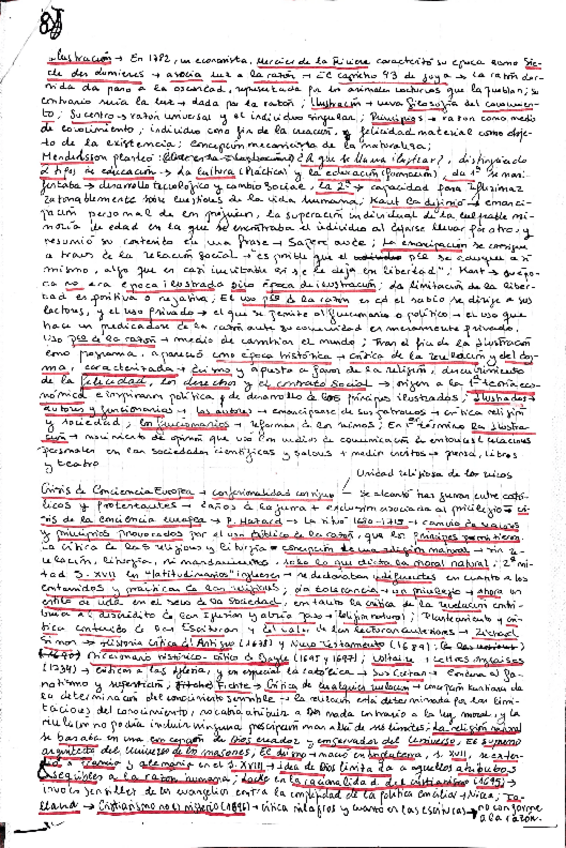 Ilustración → En 1782, un economista, Mercier de la Rivière caracterizó su época como Si-
glo des lumières → asocia luz a la razón → El capricho 43 de Goya → La razón dor-
mida da paso a la oscuridad, representada por los animales nocturnos que la pueblan; su
contrario sería la luz → dada por la razón; Ilustración → nueva filosofía del conocimien-
to; Su centro → razón universal y el individuo singular; Principios → razón como medio
de conocimiento; individuo como fin de la creación y felicidad material como obje-
to de la existencia; Concepción mecanicista de la naturaleza;
Mendelssohn planteó ¿A qué se llama ilustrar?, distinguiendo
2 tipos de educación → La cultura (Práctica) y la educación (formación), la 1ª se mani-
festaba → desarrollo tecnológico y cambio social, la 2ª → capacidad para reflexionar
razonablemente sobre cuestiones de la vida humana; Kant la definió → emanci-
pación personal de los prejuicios, la superación individual de la culpable mi-
noría de edad en la que se encontraba el individuo al dejarse llevar por otro, y
resumió su contenido en una frase → Sapere aude; La emancipación se consigue
a través de la relación social → es posible que el pco se eduque a sí
mismo, algo que es casi inevitable si se le deja en libertad"; Kant → su épo-
ca no era época ilustrada sino época de ilustración; La limitación de la liber-
tad es positiva o negativa; El uso pco de la razón es cd el sabio se dirige a sus
lectores, y el uso privado → el que se permite al funcionario o político → el uso que
hace un predicador de la razón ante su comunidad es meramente privado.
Uso pco de la razón → medio de cambiar el mundo; Tras el fin de la Ilustración
como programa, apareció como época histórica → crítica de la revelación y del dog-
ma, caracterizada → deísmo y apuesta a favor de la religión, descubrimiento
de la felicidad, los derechos y el contrato social → origen a la 1ª teoría eco-
nómica e inspiraron política y de desarrollo de los principios ilustrados; Ilustrados →
autores y funcionarios → los autores → emanciparse de sus patronos → crítica religión
y sociedad; los funcionarios → reformas de los mismos; En 1er término la Ilustra-
ción → movimiento de opinión que usó los medios de comunicación de entonces (relaciones
personales en las sociedades científicas y salones + medios escritos → prensa, libros
y teatro
Unidad religiosa de los reinos
Crisis de Conciencia Europea → confesionalidad continuó – se alcanzó tras guerras entre cató-
licos y protestantes → 2 años de la guerra + exclusión asociada al privilegio → cri-
sis de la conciencia europea → P. Hazard → la situó 1680-1715 → cambio de valores
y principios provocados por el uso público de la razón, que los
la crítica de las religiones y liturgia → concepción de una religión natural → sin re-
velación, liturgia, ni mandamientos, solo lo que dicta la moral natural; 2ª mi-
tad S. XVII en "latitudinarios" ingleses → se declaraban indiferentes en cuanto a los
contenidos y prácticas de las religiones; la tolerancia → un privilegio → ahora un
estilo de vida en el seno de la Sociedad, en tanto la crítica de la revelación conti-
nua al descrédito de las Iglesias y abría paso → (religión natural); Planteamiento y crí-
tica contenido de las Escrituras y el valor de las lecturas anteriores → Richard
Simon → Historia Crítica del Antiguo (1678) y Nuevo Testamento (1689);
Diccionario histórico-crítico de Bayle (1695 y 1697); Voltaire → Lettres Anglaises
(1734) → críticas a las Iglesias, y en especial la católica → Sus Cartas → Condena al fa-
natismo y superstición; Fichte → Crítica de cualquier revelación → concepción kantiana de
la determinación del conocimiento sensible → la revelación está determinada por las limi-
taciones del conocimiento, no cabía atribuir a Dios nada contrario a la ley moral, y la
religión no podía incluir ninguna prescripción más allá de sus límites; La religión natural
se basaba en una concepción de Dios creador y conservador del Universo, El supremo
arquitecto del universo de los masones; El deísmo → nació en Inglaterra, S. XVII, se exten-
dió a Francia y Alemania en el S. XVIII → idea de Dios limitada a aquellos atributos
asequibles a la razón humana; Locke en La racionalidad del cristianismo (1695) →
invoca sencillez de los evangelios contra la complejidad de la política eclesial → Nicea; To-
lland → Cristianismo no es misterio (1696) → crítica milagros y cuanto en las escrituras → no conforme
a la razón.